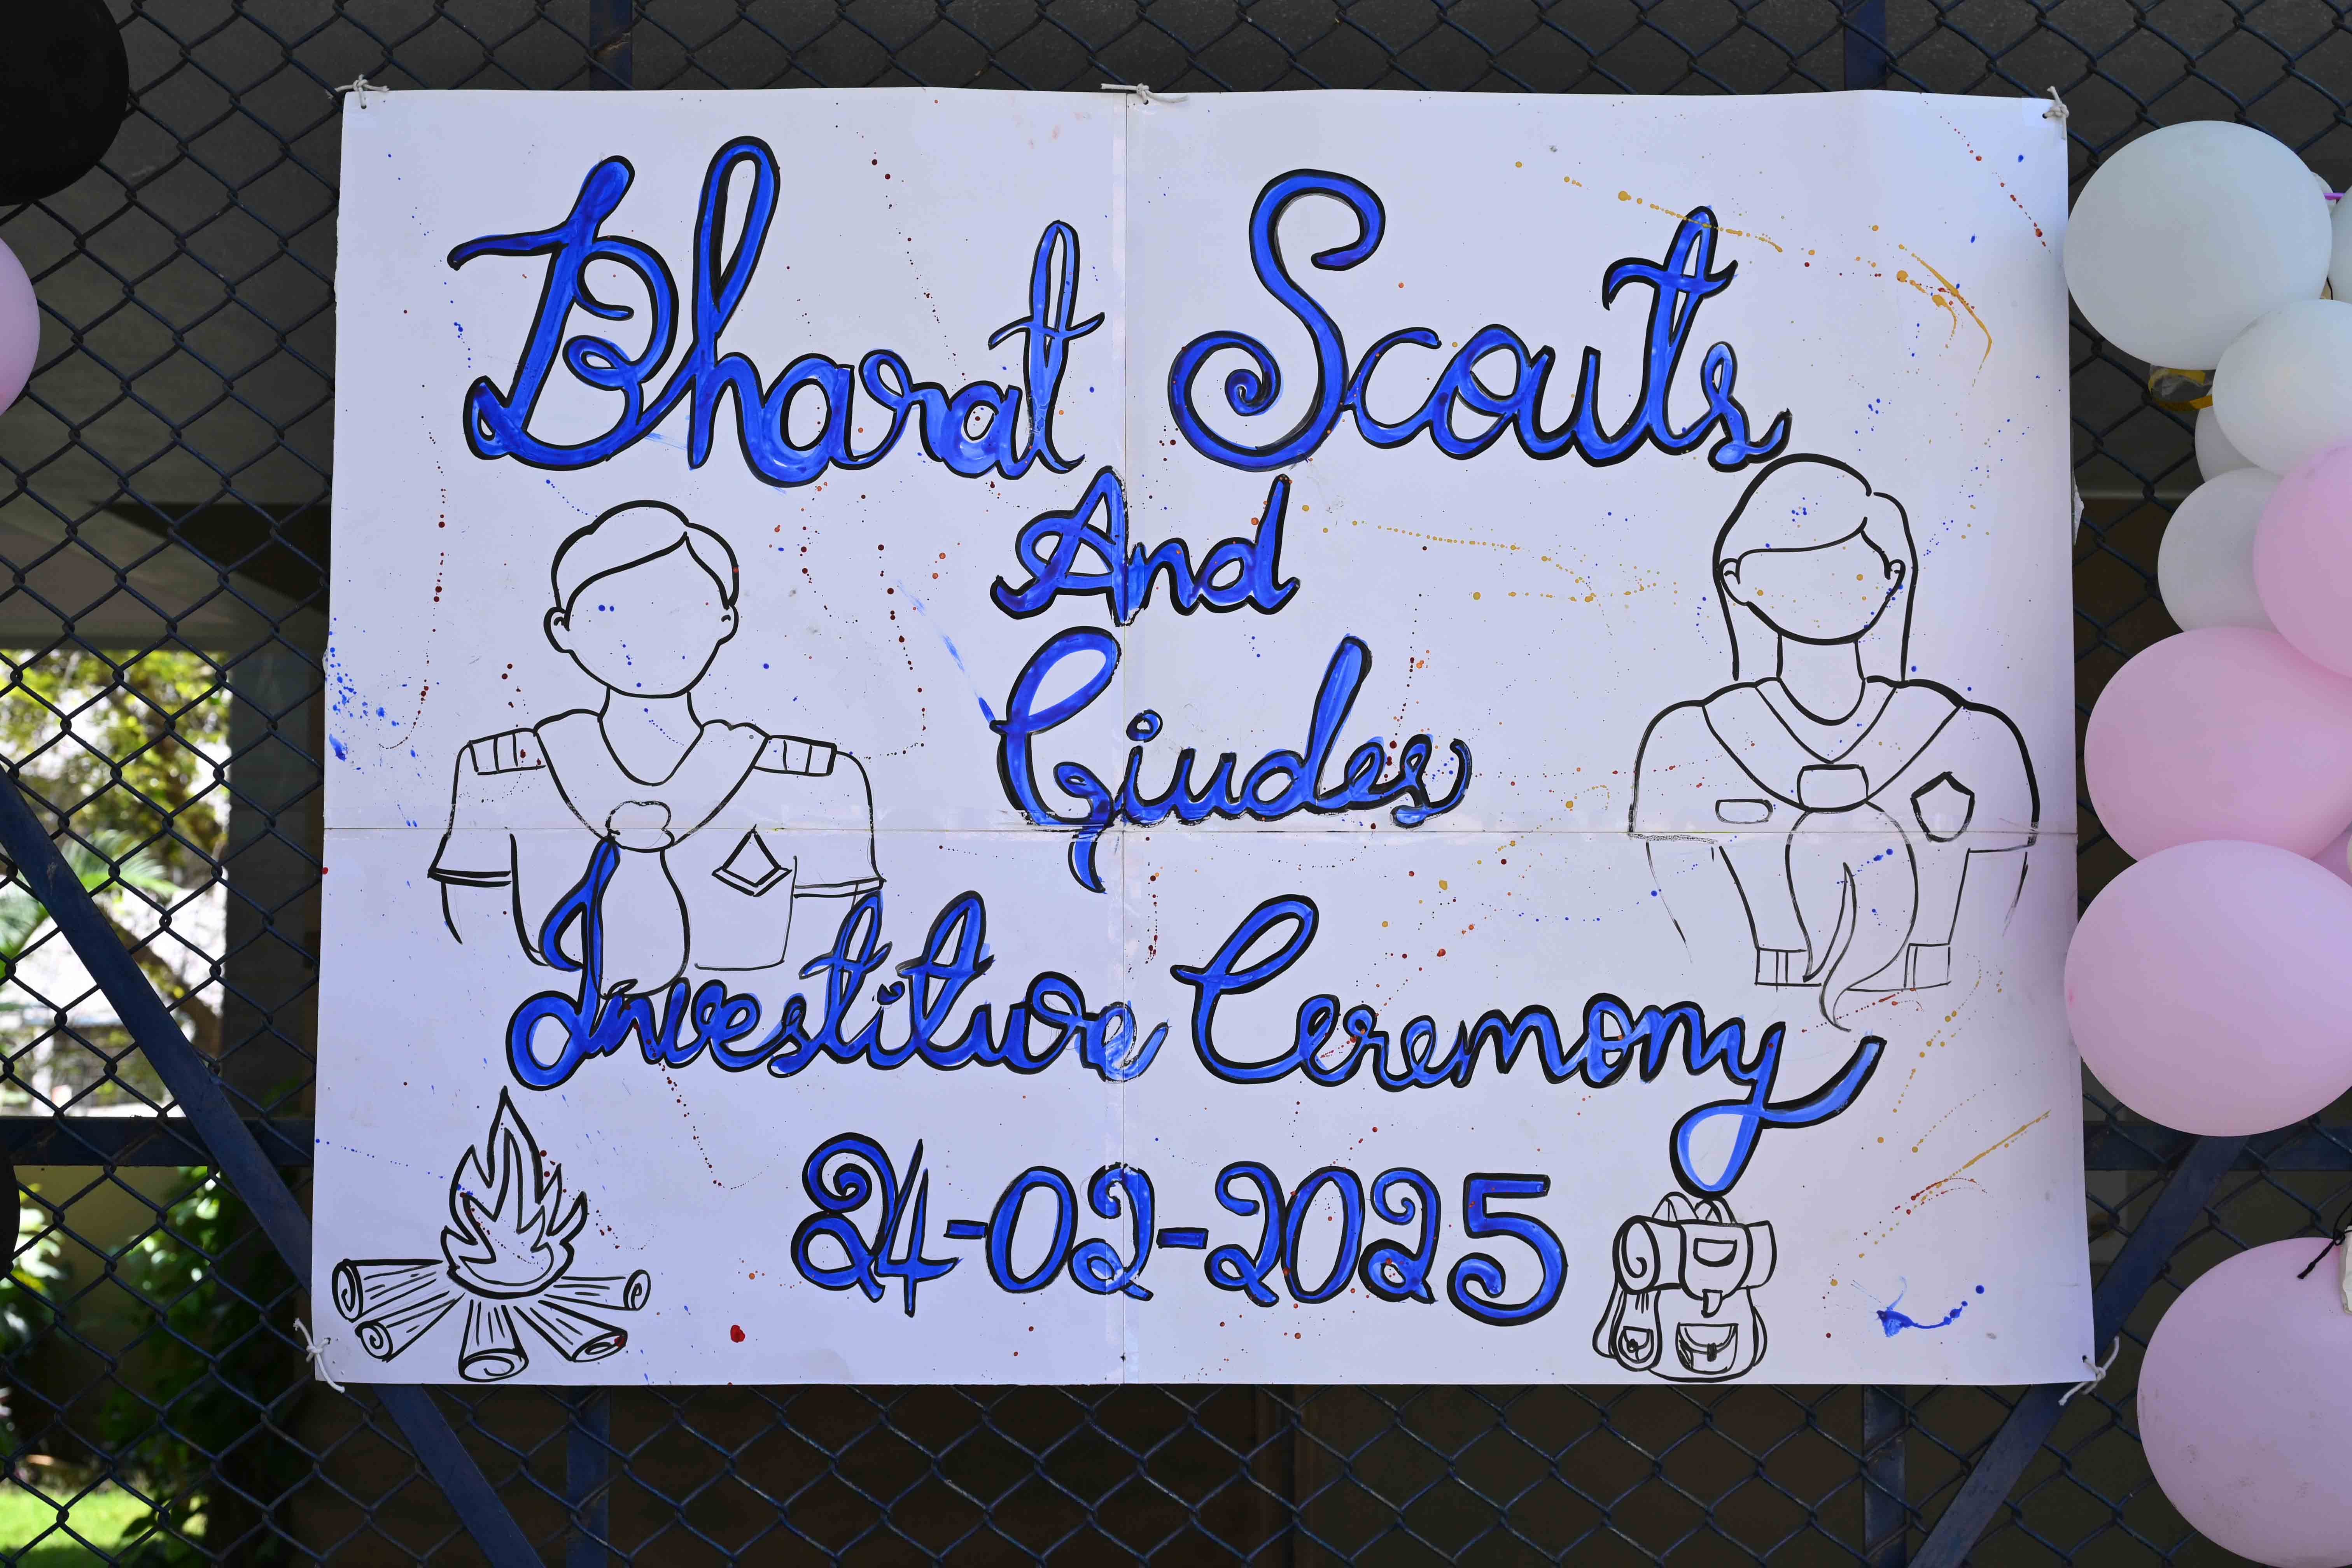 Bharat Scouts
And
Giudes
Investiture Ceremony
24-02-2025